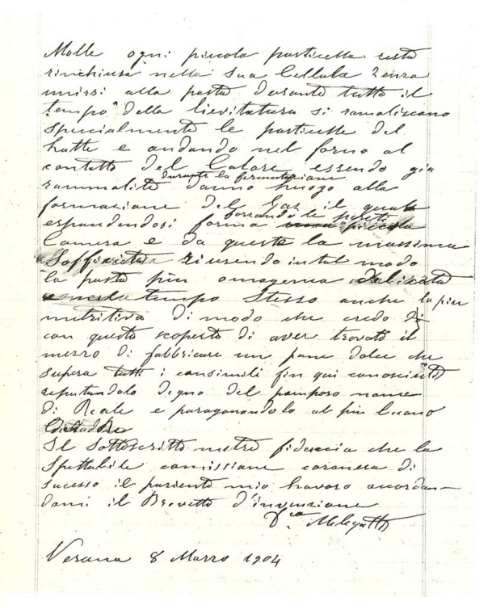 Molle ogni piccola particella resta
rinchiusa nella sua Cellula senza
unirsi alla pasta durante tutto il
tempo della lievitatura si
specialmente le particelle del
latte e andando nel forno al
contatto del Calore essendo già
durante la fermentazione
danno luogo alla
formazione del Gaz il quale
forzando le pareti
espandendosi forma piccola
Camera e da queste la massima
Sofficità riusendo in tal modo
la pasta più omogenea delicata
e nello tempo Stesso anche la più
nutritiva di modo che credo di
con questa scoperta di aver trovato il
mezzo di fabbricare un pane dolce che
supera tutti i consimili fin qui conosciuti
reputandolo degno del pomposo nome
di Reale e paragonandolo al più buono

Il Sottoscritto nutre fiduccia che la
Spettabile comissione coronera di
sucesso il pasiente mio lavoro accordan-
domi il Brevetto d'invenzione
Melegatti
Verona 8 Marzo 1904